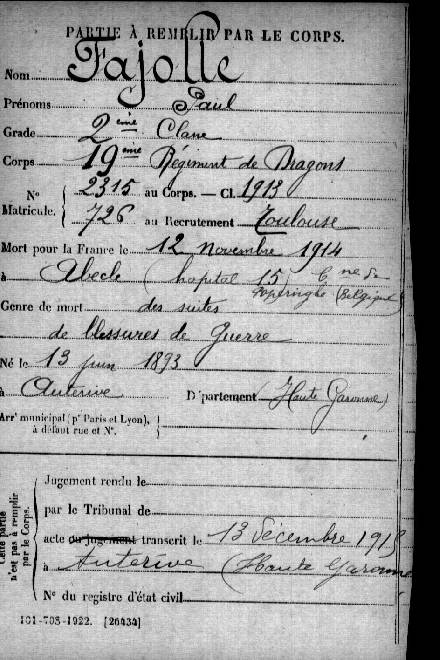 PARTIE À REMPLIR PAR LE CORPS.
Nom Fajolle
Prénoms Paul
Grade 2ème Classe
Corps 19ème Régiment de Dragons
N° Matricule. { 2315 au Corps. — Cl. 1913
726 au Recrutement Toulouse
Mort pour la France le 12 novembre 1914
à Abecle (hopital 15) Cne de
Poperinghe (Belgique)
Genre de mort des suites
de blessures de Guerre
Né le 13 juin 1893
à Auterive Département (Haute Garonne)
Arrt municipal (pr Paris et Lyon),
à défaut rue et N°.
Cette partie n'est pas à remplir par le Corps.
Jugement rendu le
par le Tribunal de
acte ou jugement transcrit le 13 Décembre 1915
à Auterive (Haute Garonne
N° du registre d'état civil
101-708-1922. [26434]